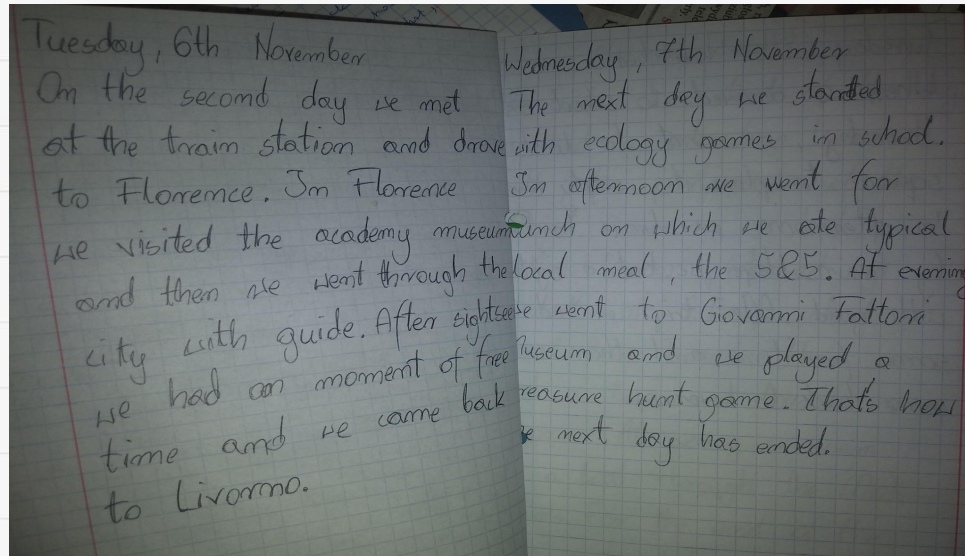 Tuesday, 6th November
On the second day we met
at the train station and drove
to Florence. In Florence
we visited the academy museum
and then we went through the
city with guide. After sightsee
we had an moment of free
time and we came back
to Livorno.
Wednesday, 7th November
The next day we started
with ecology games in school.
In afternoon we went for
lunch on which we ate typical
local meal, the 5&5. At evening
we went to Giovanni Fattori
Museum and we played a
treasure hunt game. Thats how
next day has ended.